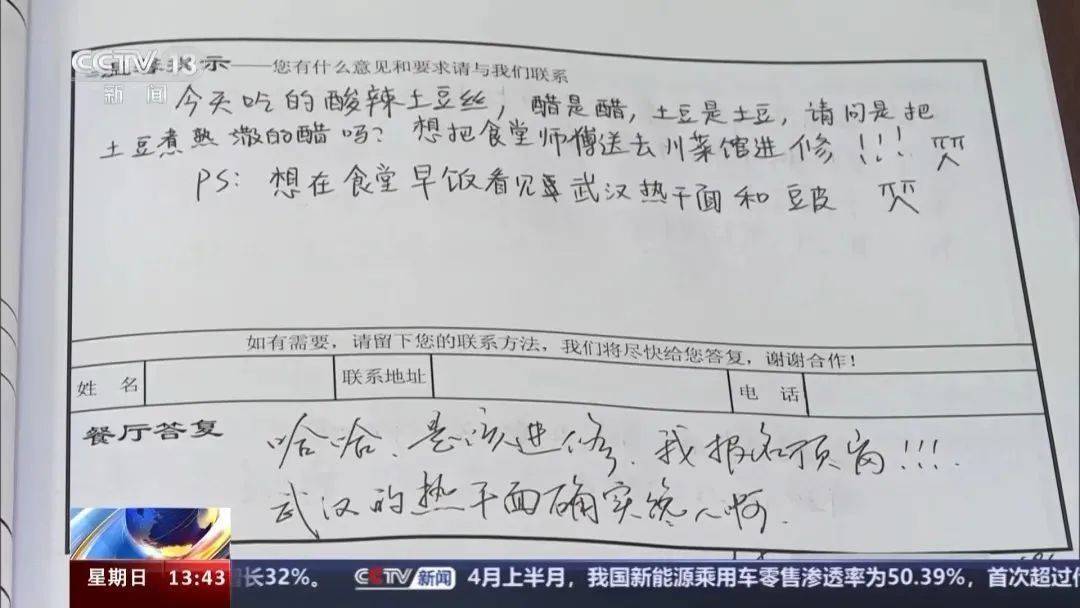 CCTV 13
新闻
示——您有什么意见和要求请与我们联系
今天吃的酸辣土豆丝，醋是醋，土豆是土豆，请问是把
土豆煮熟泼的醋吗？想把食堂师傅送去川菜馆进修！！！
PS：想在食堂早饭看见武汉热干面和豆皮
如有需要，请留下您的联系方法，我们将尽快给您答复，谢谢合作！
姓 名 联系地址 电 话
餐厅答复
哈哈，是该进修，我报名顶岗！！！
武汉的热干面确实馋人啊．
星期日 13:43 长32%。 CCTV新闻 4月上半月，我国新能源乘用车零售渗透率为50.39%，首次超过